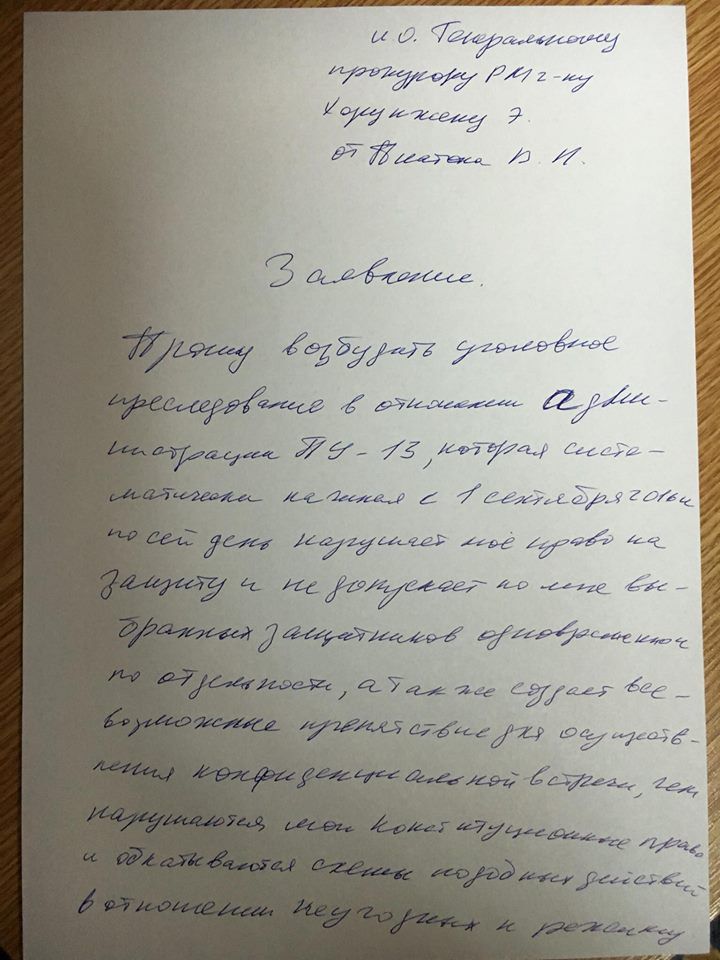 и о. Генеральному
прокурору РМ г-ну
Харунжену Э.
от Платона В. Н.
Заявление.
Прошу возбудить уголовное
преследование в отношении адми-
нистрации ПУ-13, которая систе-
матически начиная с 1 сентября 2016 и
по сей день нарушает моё право на
защиту и не допускает ко мне вы-
бранных защитников одновременно и
по отдельности, а так же создает все-
возможные препятствие для осуществ-
ления конфиденциальной встречи, чем
нарушаются мои Конституционные права
и обкатываются схемы подобных действий
в отношении неугодных к режиму